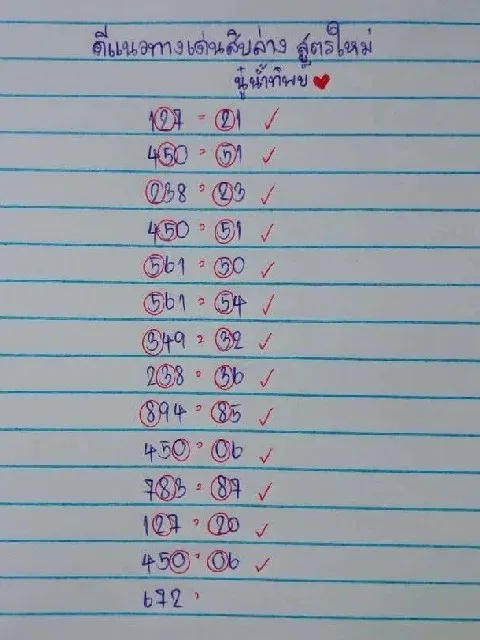 ตีแนวทางเด่นสิบล่าง สูตรใหม่
นู๋น้ำทิพย์
127 = 21 ✓
450 = 51 ✓
238 = 23 ✓
450 = 51 ✓
561 = 50 ✓
561 = 54 ✓
349 = 32 ✓
238 = 36 ✓
894 = 85 ✓
450 = 06 ✓
783 = 87 ✓
127 = 20 ✓
450 = 06 ✓
672 =